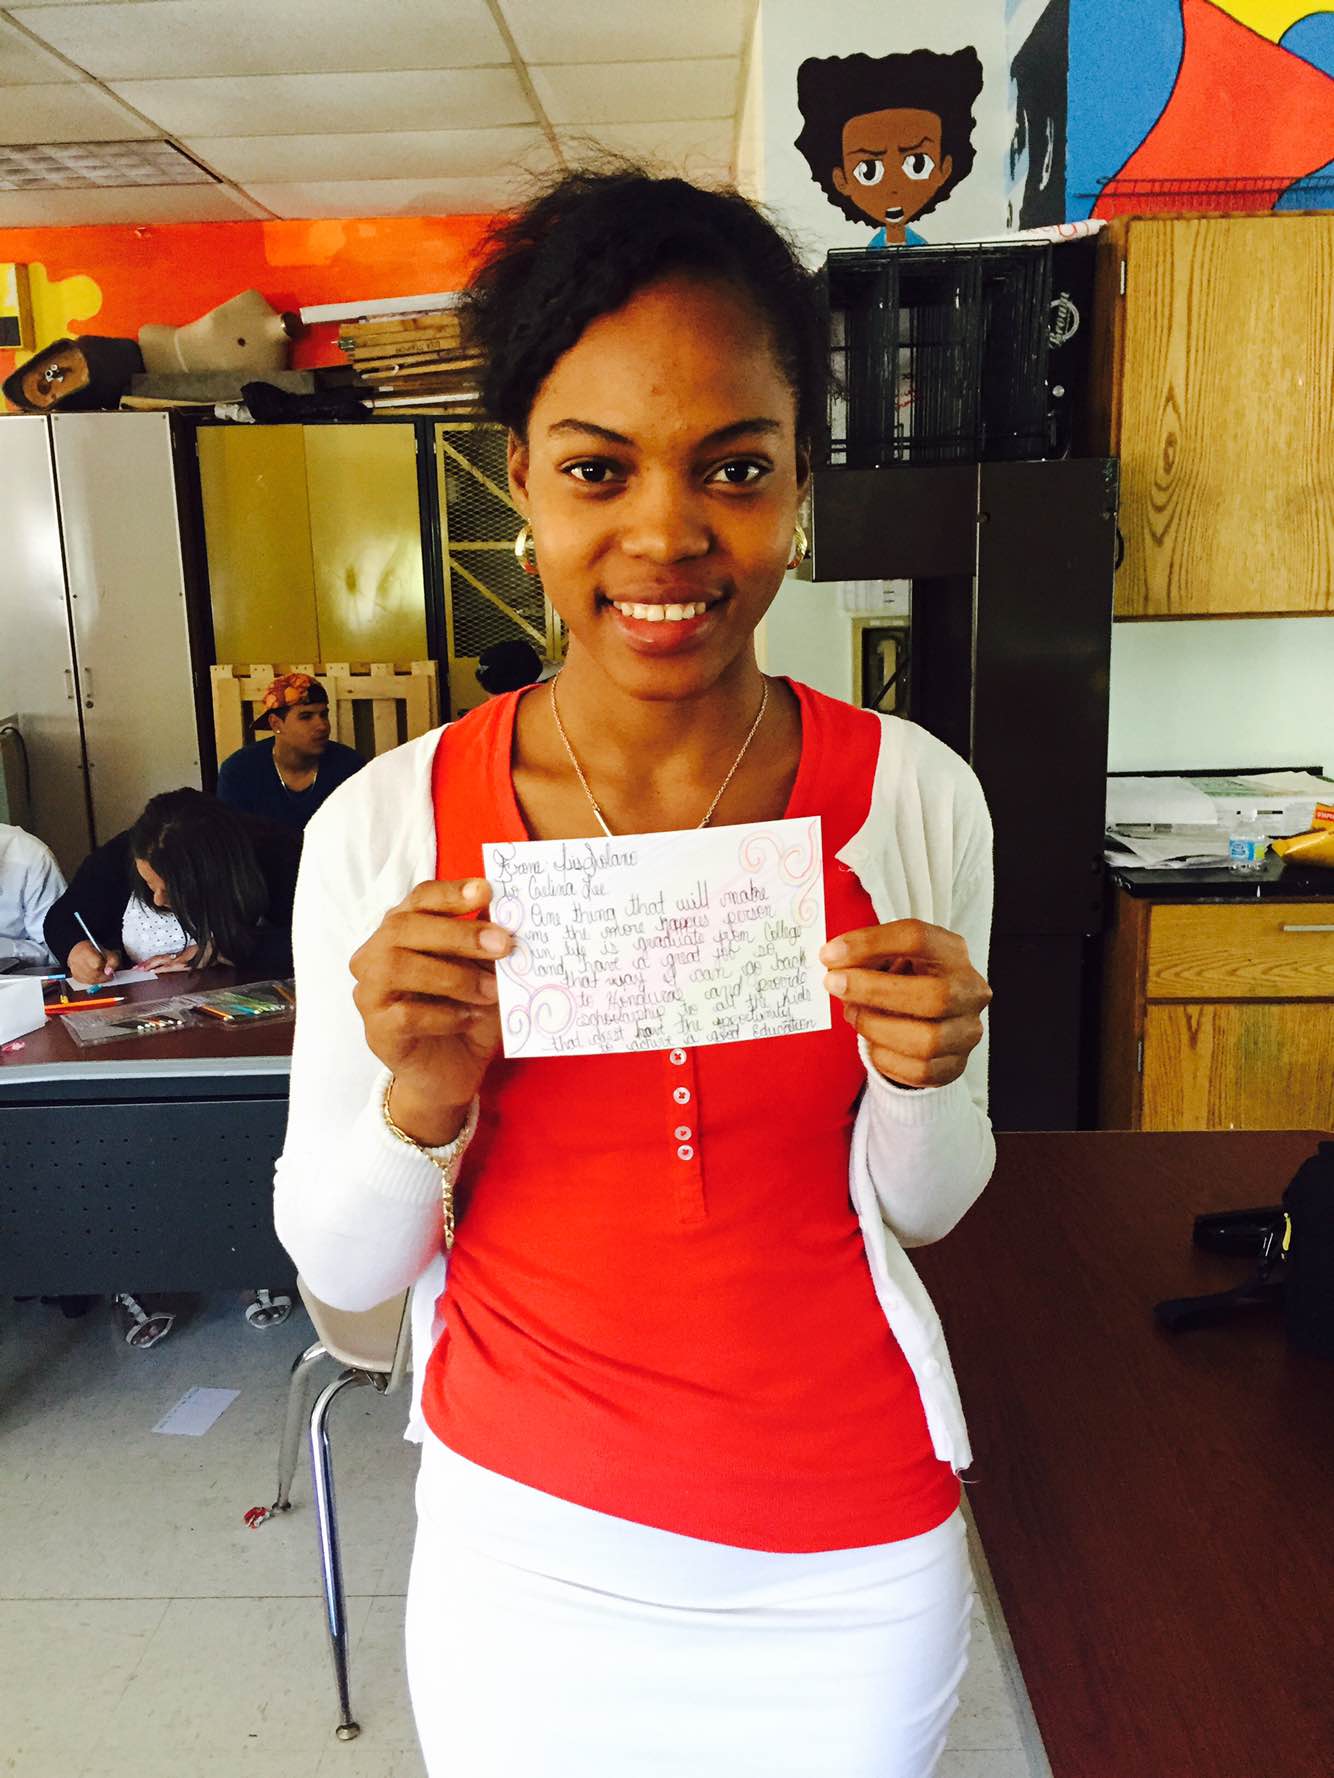 From: Lis Solano
To Celina Lee
One thing that will make
me the more happies person
in life is graduate from College
and have a great job so
that way I can go back
to Honduras and provide
scholarship to all the kids
that don't have the opportunity
to achive a good Education